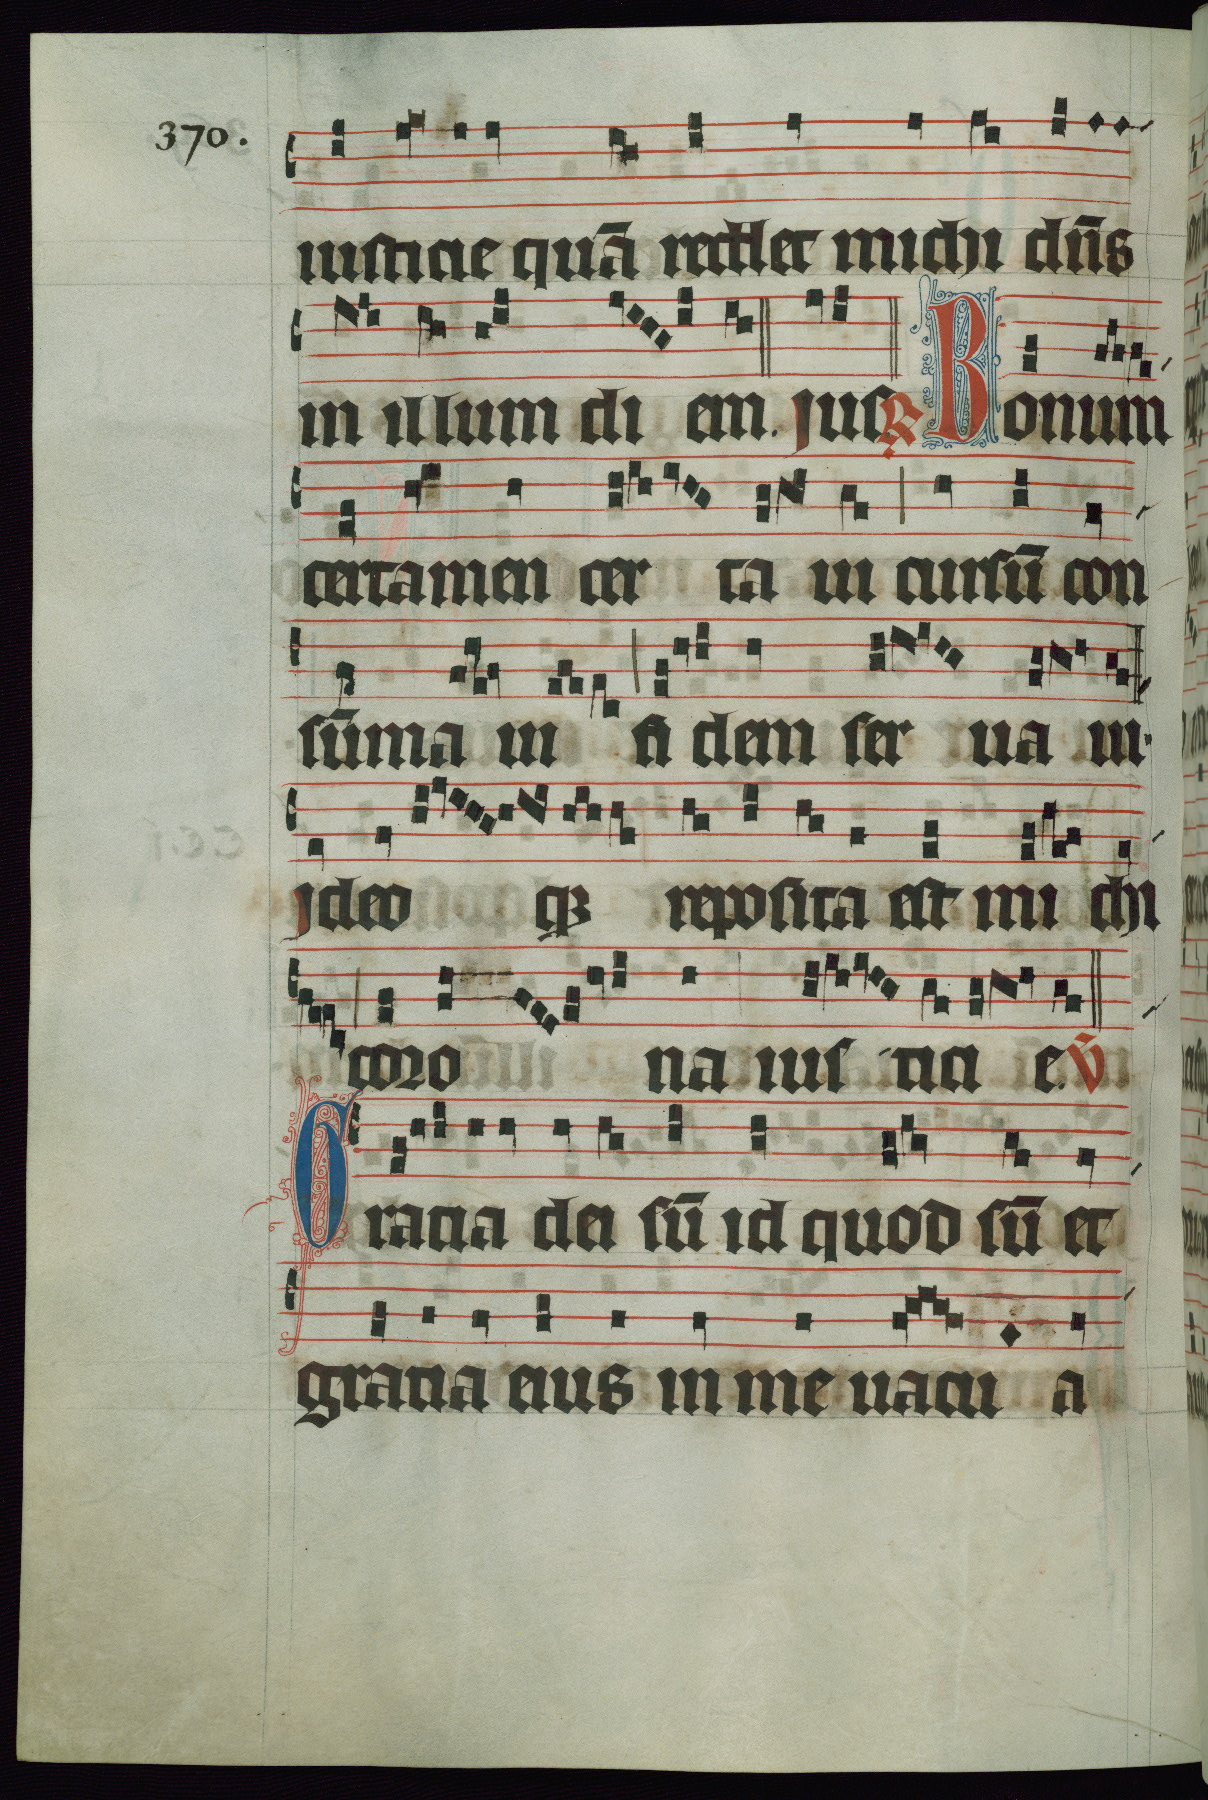 370.
iusticie quā reddet michi dn̄s
in illum di em. Jus ℟ Bonum
certamen cer ta ui cursū con
sūma ui fi dem ser ua ui.
Jdeo reposita est mi chi
coro na ius tici e. ℣
Gratia dei sū id quod sū et
gratia eius in me uacu a